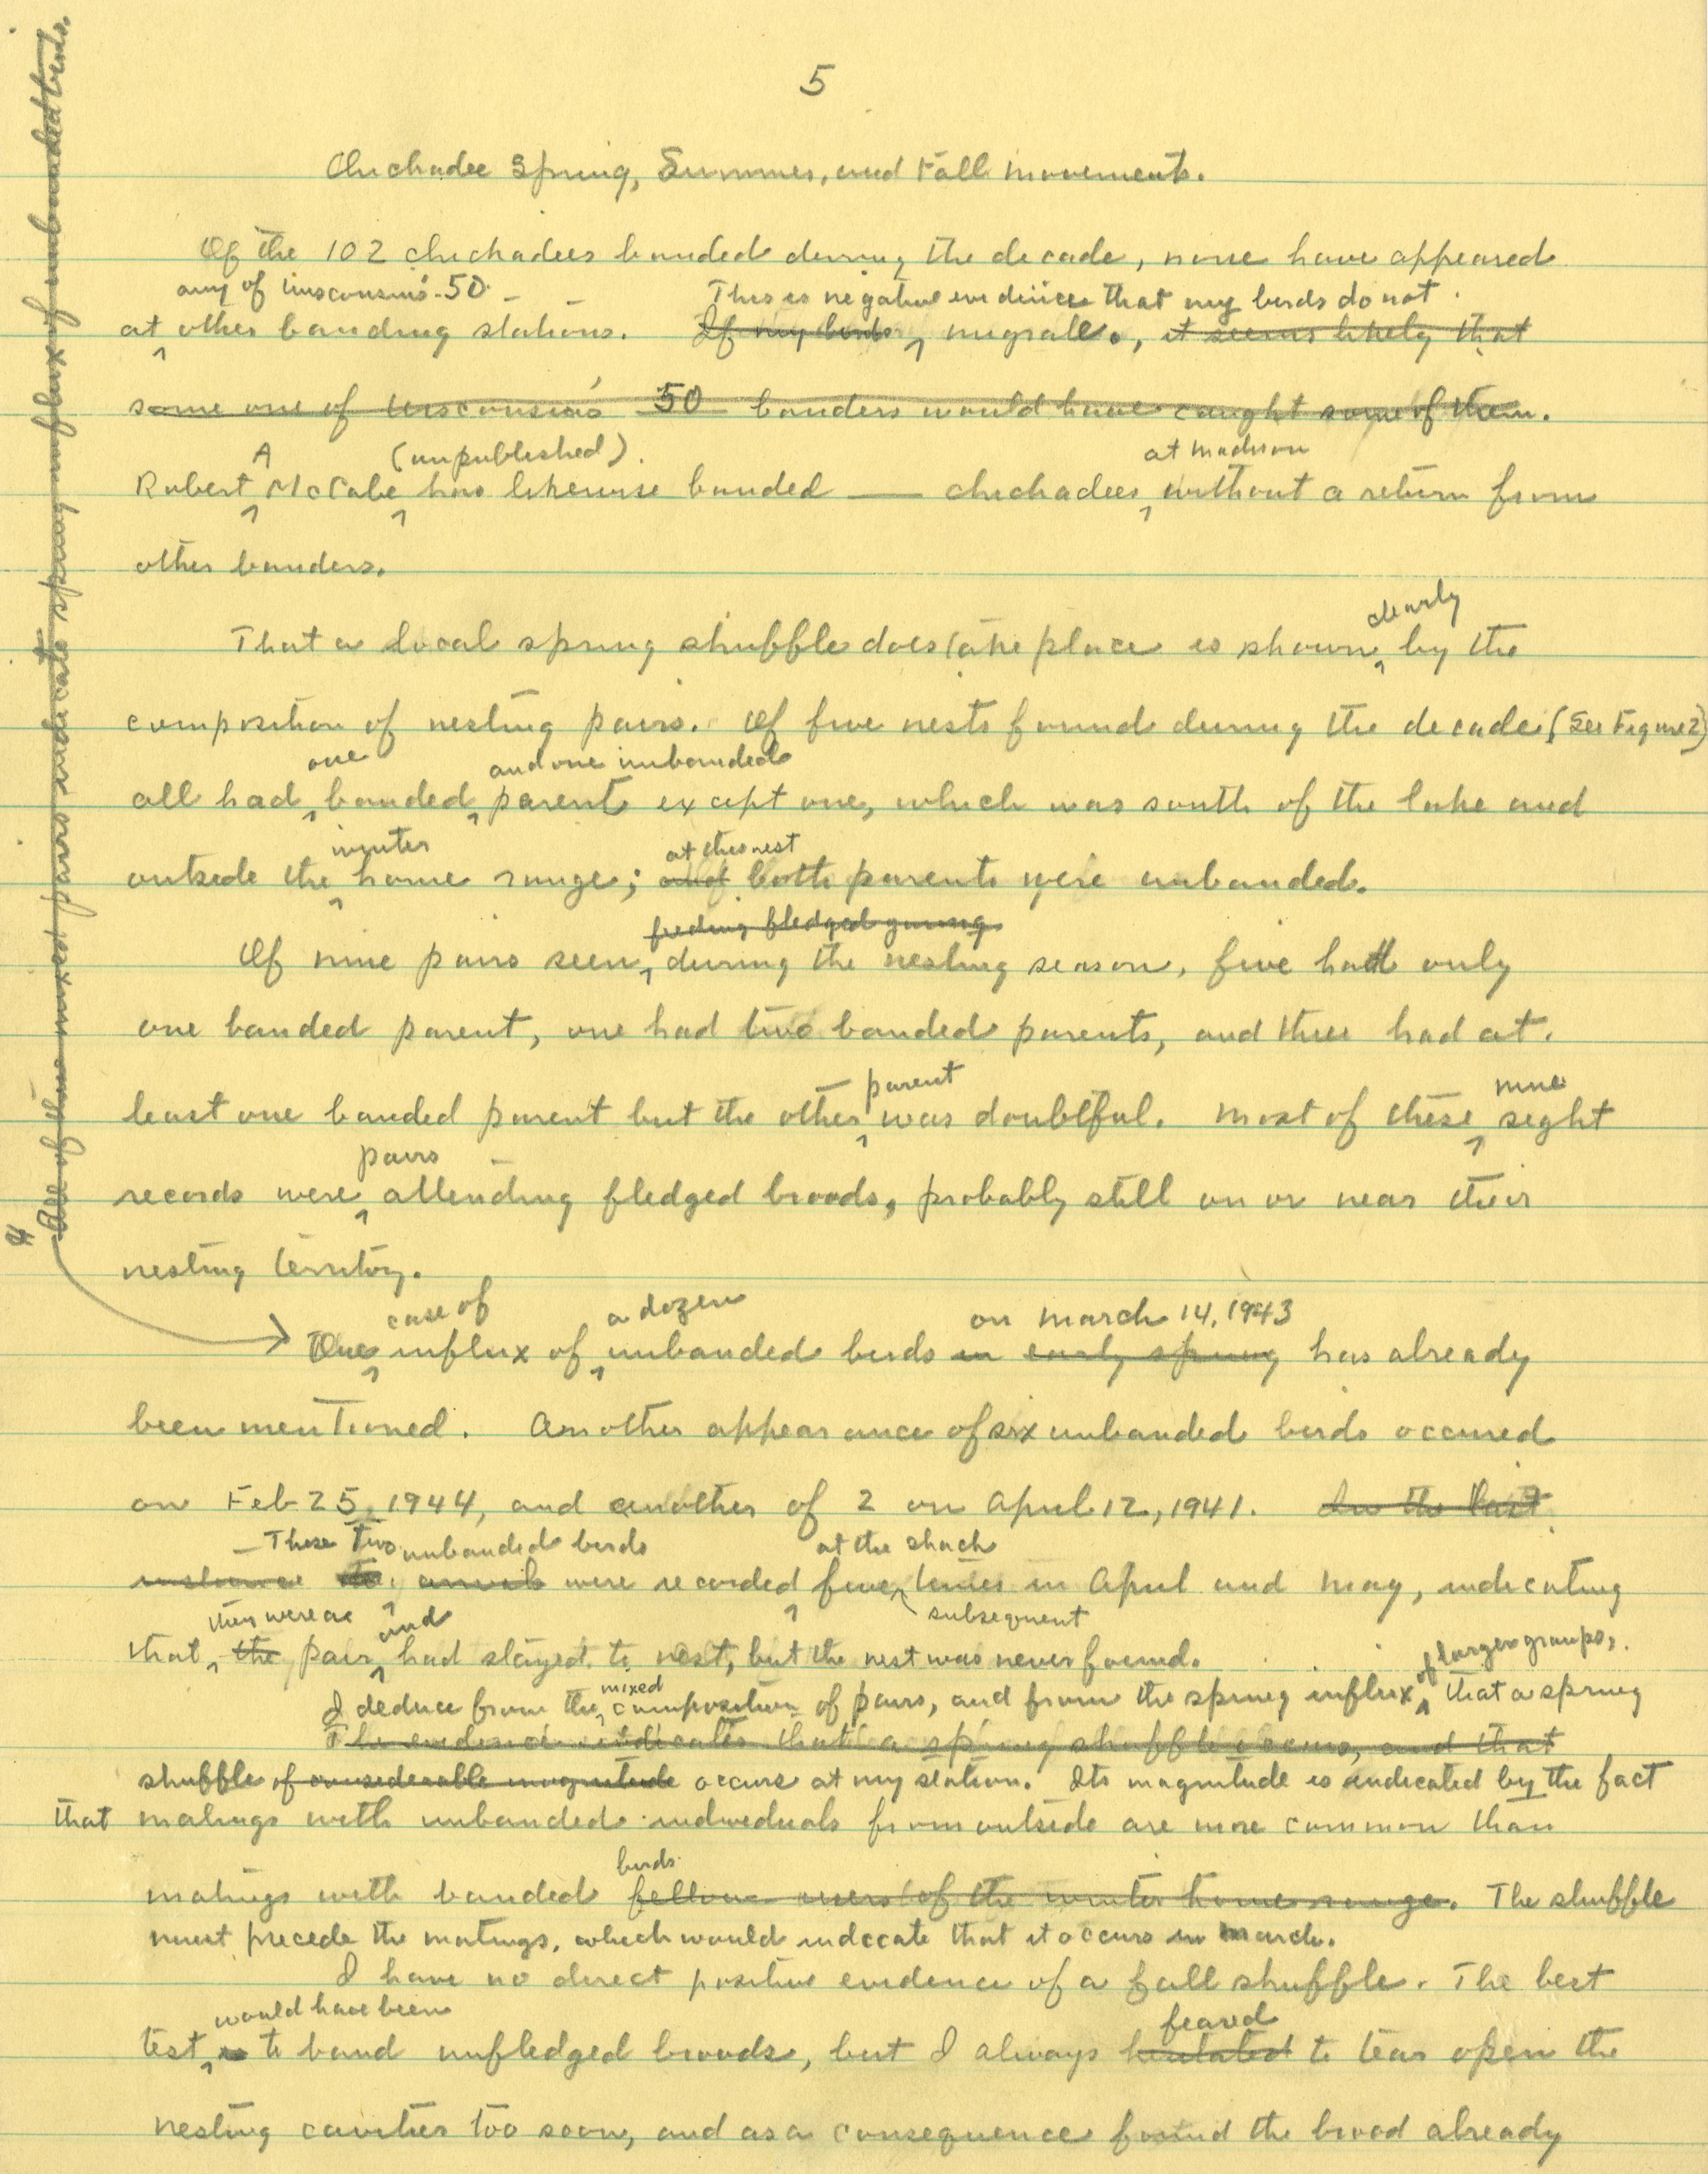 5
Chickadee Spring, Summer, and Fall Movements.
Of the 102 chickadees banded during the decade, none have appeared
any of Wisconsin's 50
This is negative evidence that my birds do not
at other banding stations. If my birds migrate., it seems likely that
some one of Wisconsin's 50 banders would have caught some of them.
A (unpublished). at Madison
Robert McCabe has likewise banded ___ chickadees without a return from
other banders.
clearly
That a local spring shuffle does take place is shown by the
composition of nesting pairs. Of five nests found during the decade (See Figure 2)
one and one unbanded
all had banded parent except one, which was south of the lake and
winter at this nest
outside the home range; and both parents were unbanded.
feeding fledged young
Of nine pairs seen during the nesting season, five had only
one banded parent, one had two banded parents, and three had at
parent nine
least one banded parent but the other was doubtful. Most of these sight
pairs
records were attending fledged broods, probably still on or near their
nesting territory.
¶ All of these mixed pairs indicate spring influx of unbanded birds.
case of a dozen on March 14, 1943
One influx of unbanded birds in early spring has already
been mentioned. Another appearance of six unbanded birds occured
on Feb 25, 1944, and another of 2 on April 12, 1941. In the last
These two unbanded birds at the shack
instance were recorded five times in April and May, indicating
subsequent
they were a and
that the pair had stayed to nest, but the nest was never found.
mixed of larger groups,
I deduce from the composition of pairs, and from the spring influx that a spring
The evidence indicates that a spring shuffle occurs, and that
shuffle of considerable magnitude occurs at my station. Its magnitude is indicated by the fact
that matings with unbanded individuals from outside are more common than
birds
matings with banded fellow users of the winter home range. The shuffle
must precede the matings, which would indicate that it occurs in March.
I have no direct positive evidence of a fall shuffle. The best
would have been feared
test is to band unfledged broods, but I always hesitated to tear open the
nesting cavities too soon, and as a consequence found the brood already